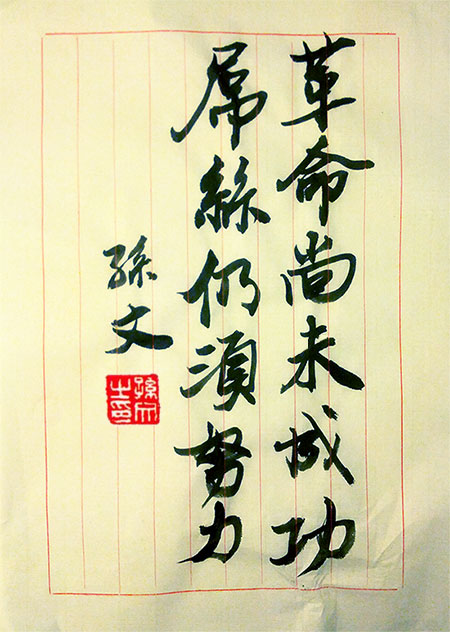 革命尚未成功
屌絲仍須努力
孫文
孫文之印